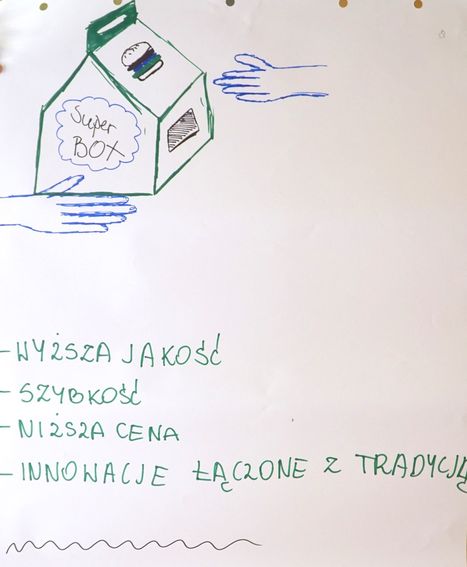 Super
BOX
- WYŻSZA JAKOŚĆ
- SZYBKOŚĆ
- NIŻSZA CENA
- INNOWACJE ŁĄCZONE Z TRADYCJĄ